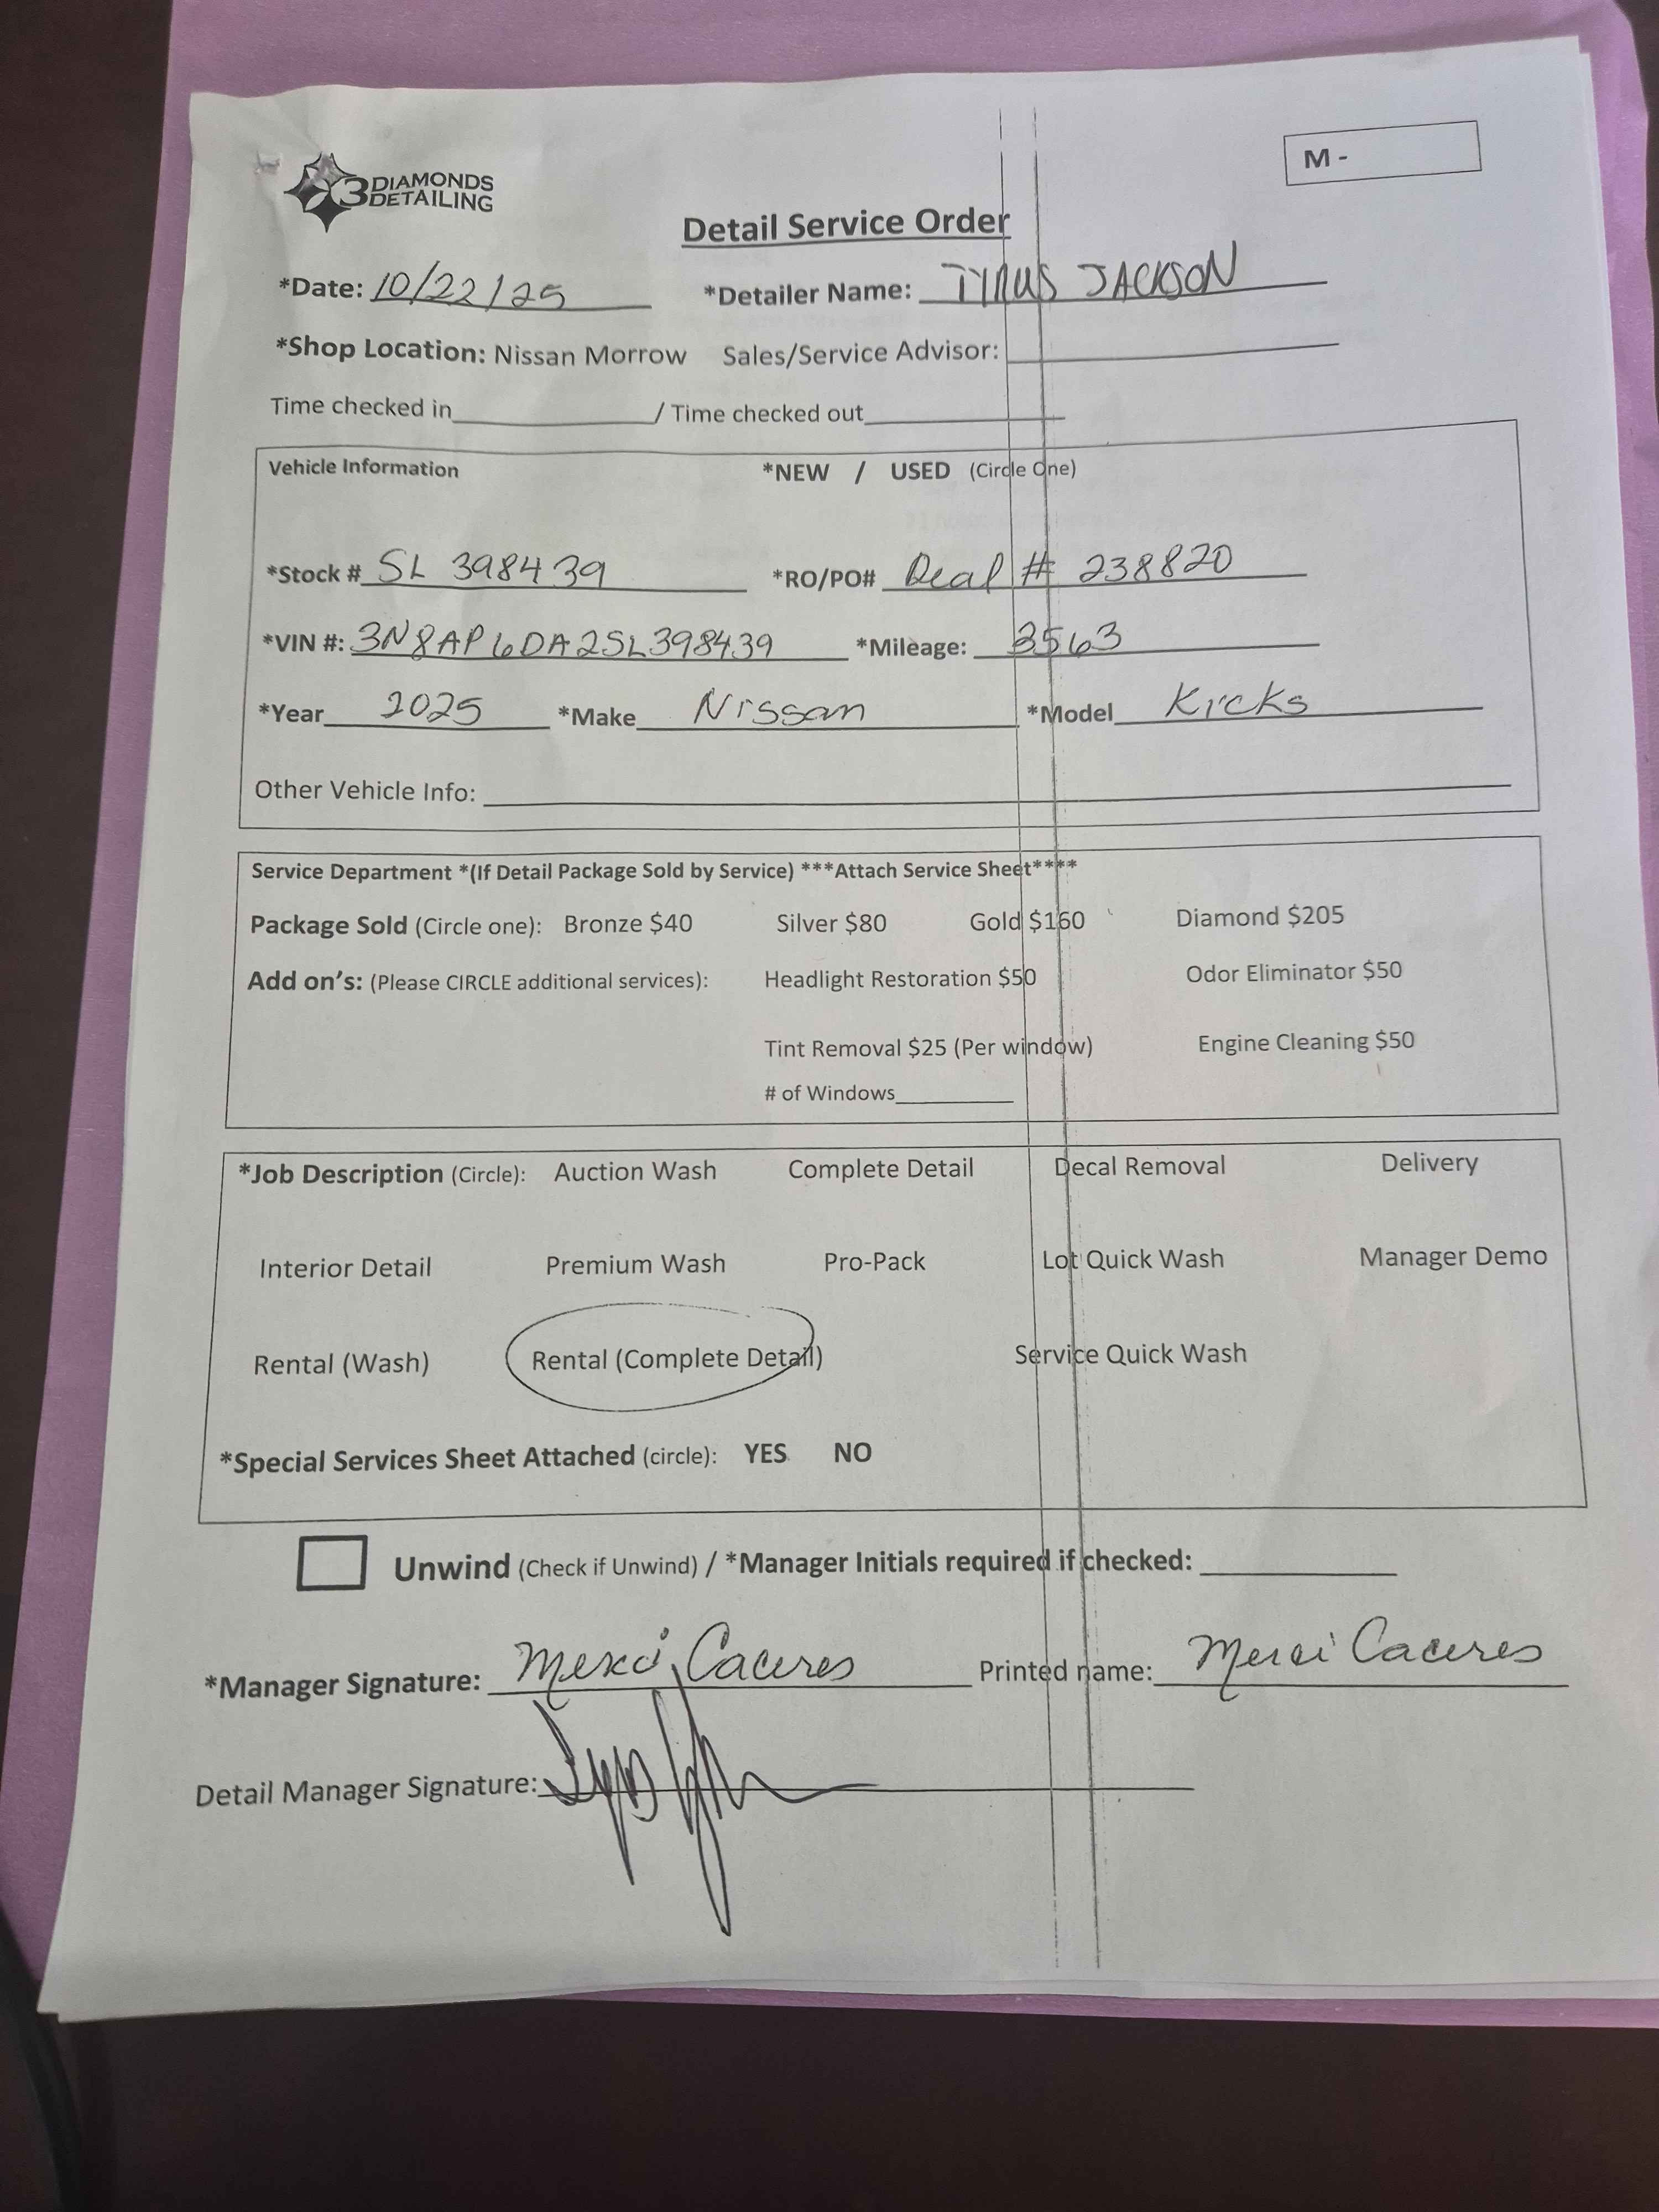 3 DIAMONDS
DETAILING
M -
Detail Service Order
*Date: 10/22/25 *Detailer Name: TYRUS JACKSON
*Shop Location: Nissan Morrow Sales/Service Advisor:
Time checked in / Time checked out
Vehicle Information *NEW / USED (Circle One)
*Stock # SL 398439 *RO/PO# Deal # 238820
*VIN #: 3N8AP6DA2SL398439 *Mileage: 3563
*Year 2025 *Make Nissan *Model Kicks
Other Vehicle Info:
Service Department *(If Detail Package Sold by Service) ***Attach Service Sheet****
Package Sold (Circle one): Bronze $40 Silver $80 Gold $160 Diamond $205
Add on's: (Please CIRCLE additional services): Headlight Restoration $50 Odor Eliminator $50
Tint Removal $25 (Per window) Engine Cleaning $50
# of Windows
*Job Description (Circle): Auction Wash Complete Detail Decal Removal Delivery
Interior Detail Premium Wash Pro-Pack Lot Quick Wash Manager Demo
Rental (Wash) Rental (Complete Detail) Service Quick Wash
*Special Services Sheet Attached (circle): YES NO
Unwind (Check if Unwind) / *Manager Initials required if checked:
*Manager Signature: Merci Caceres Printed name: Merci Caceres
Detail Manager Signature: